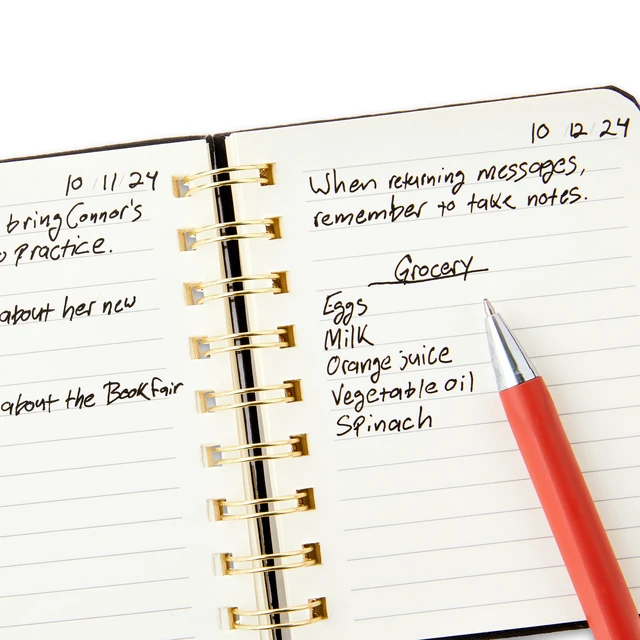 10 11 24
bring Connor's
practice.
about her new
about the Book fair
10 12 24
When returning messages,
remember to take notes.
Grocery
Eggs
Milk
Orange juice
Vegetable oil
Spinach